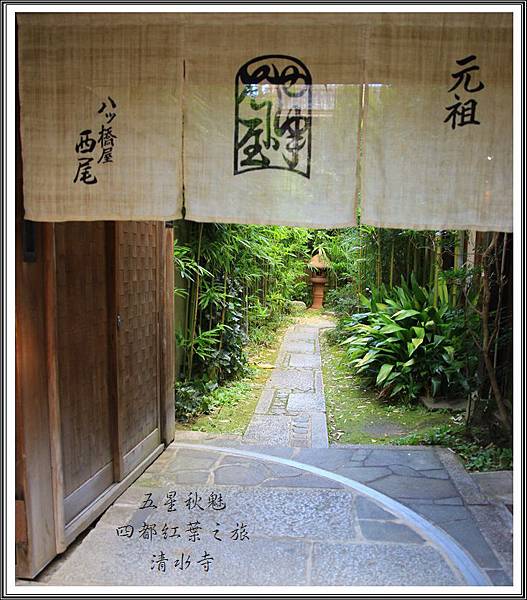 元祖
八ッ橋屋
西尾
五星秋魅
四都紅葉之旅
清水寺